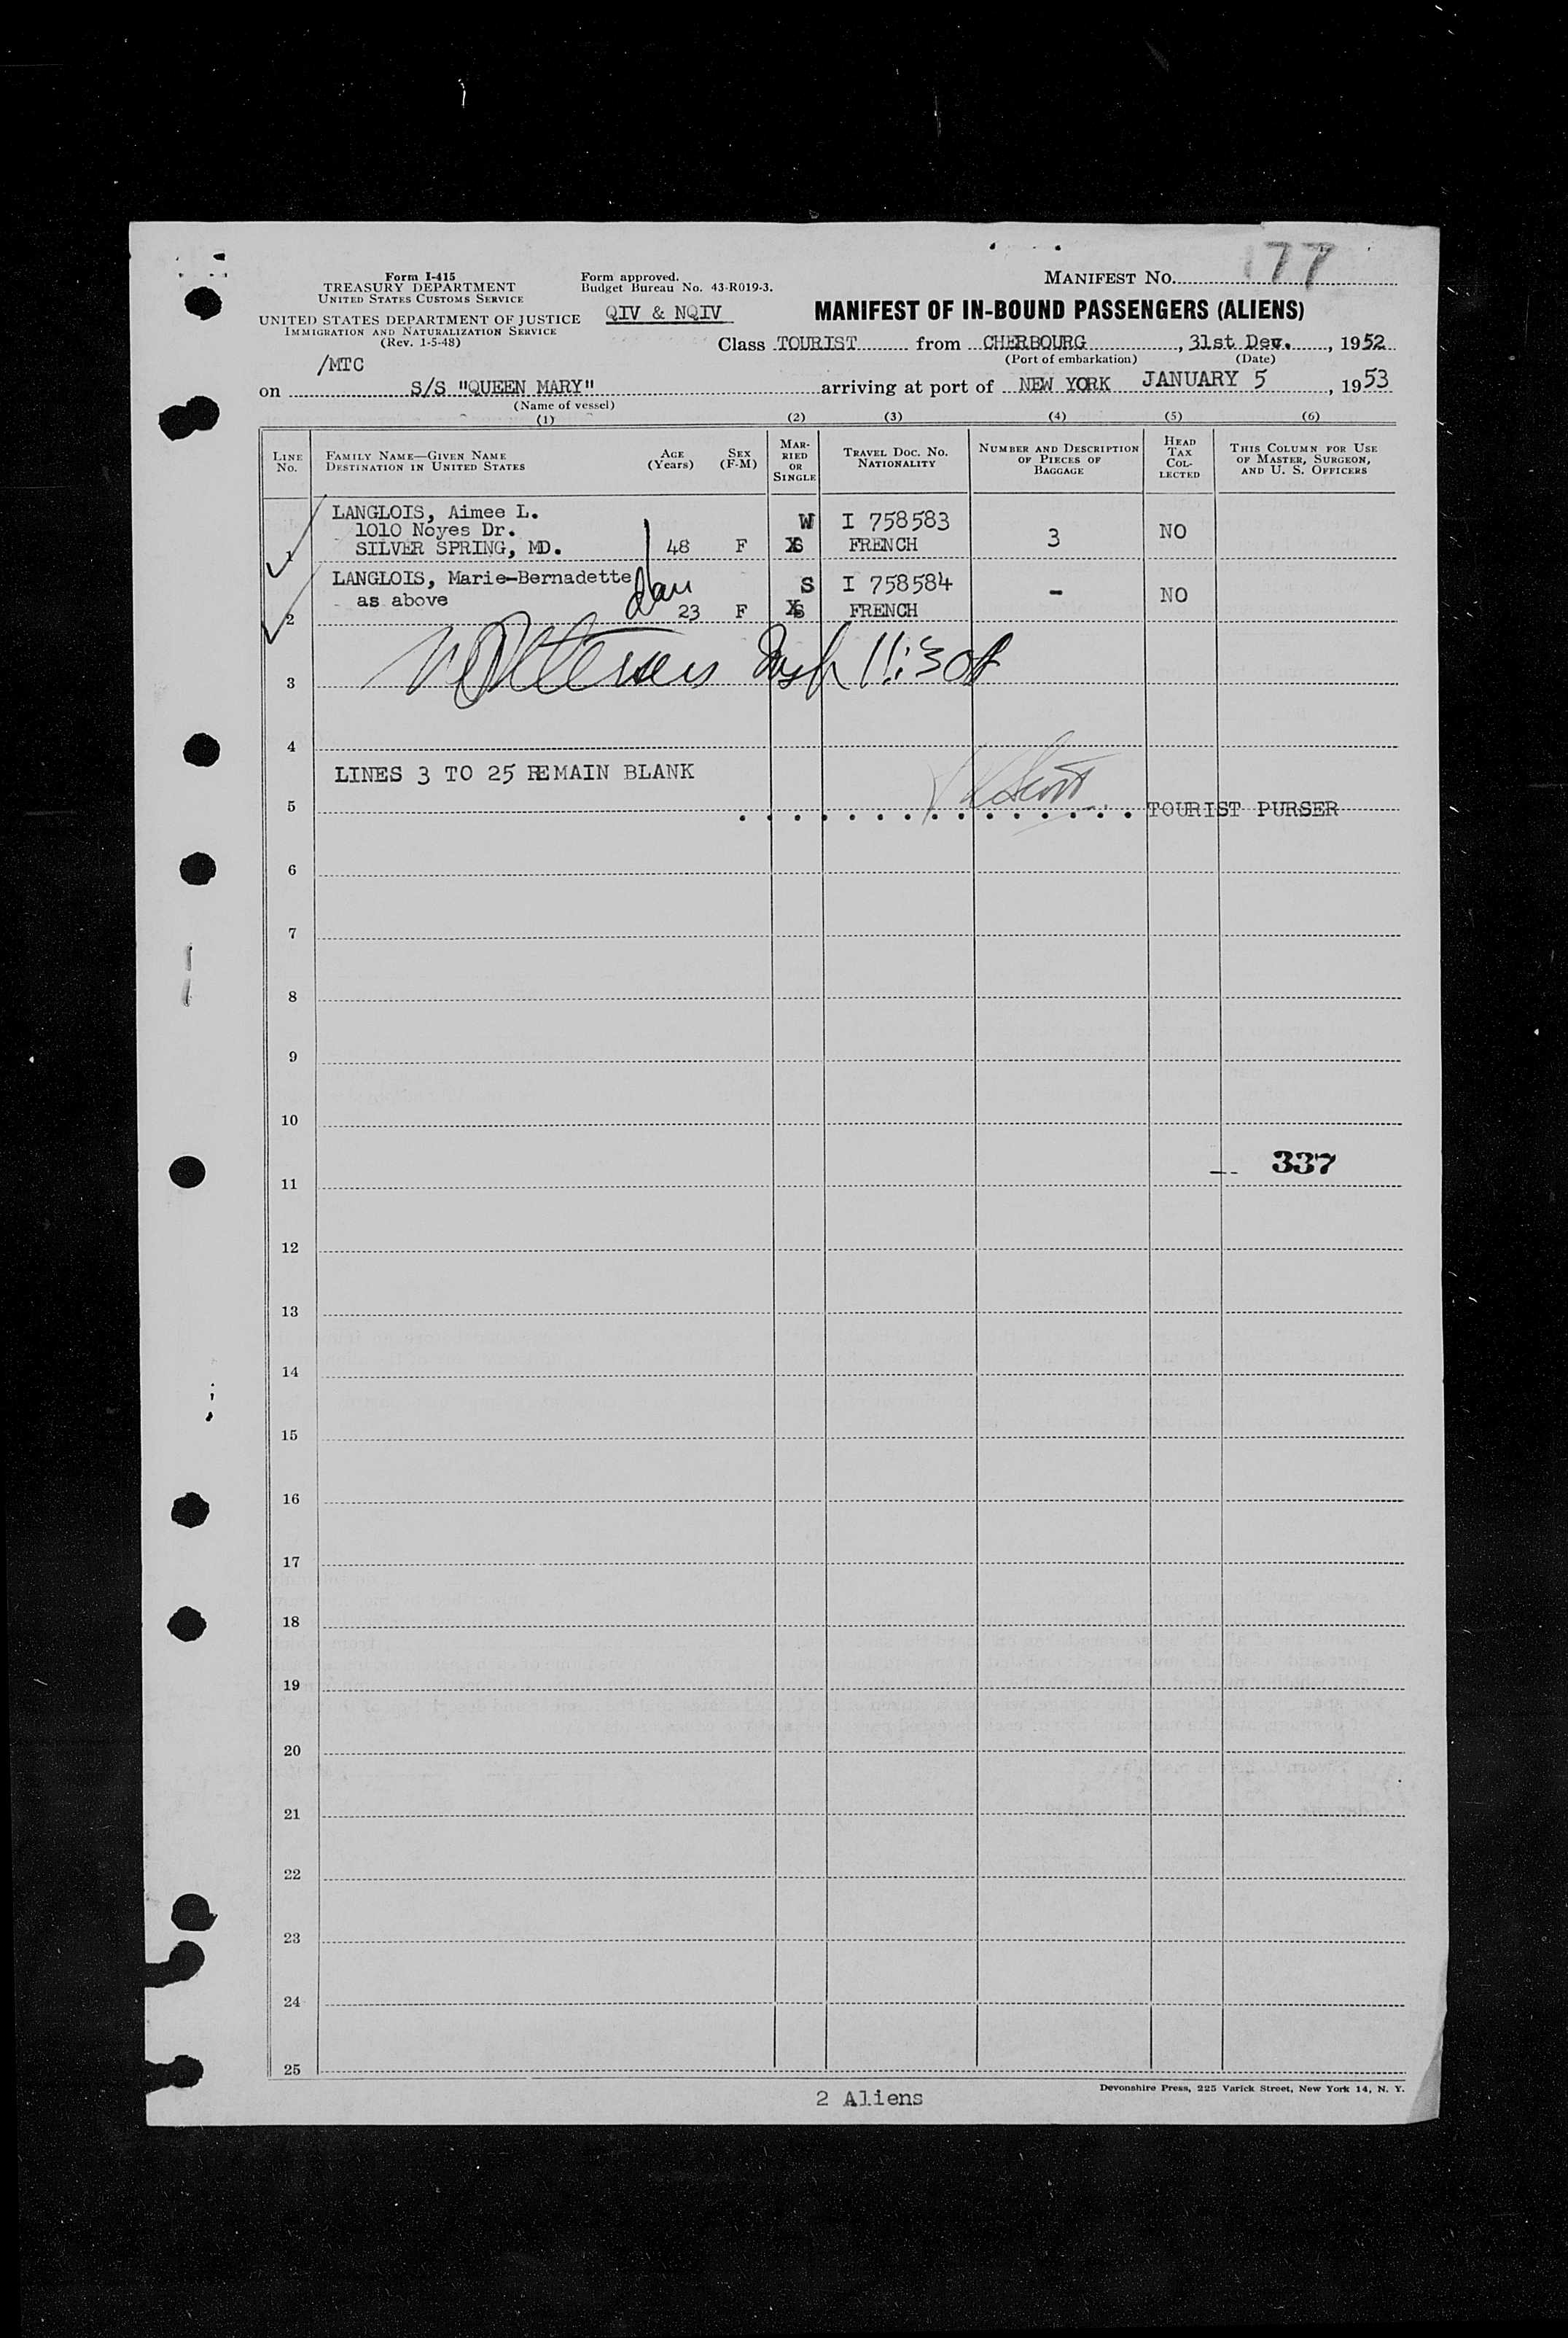 177
Form I-415
TREASURY DEPARTMENT
UNITED STATES CUSTOMS SERVICE
UNITED STATES DEPARTMENT OF JUSTICE
IMMIGRATION AND NATURALIZATION SERVICE
(Rev. 1-5-48)
Form approved.
Budget Bureau No. 43-R019-3.
QIV & NQIV
MANIFEST NO.
MANIFEST OF IN-BOUND PASSENGERS (ALIENS)
Class TOURIST from CHERBOURG, 31st Dev., 1952
(Port of embarkation) (Date)
/MTC
on S/S "QUEEN MARY" arriving at port of NEW YORK JANUARY 5, 1953
(Name of vessel)
(1) (2) (3) (4) (5) (6)
LINE NO.
FAMILY NAME—GIVEN NAME
DESTINATION IN UNITED STATES
AGE (Years)
SEX (F-M)
MARRIED OR SINGLE
TRAVEL DOC. NO. NATIONALITY
NUMBER AND DESCRIPTION OF PIECES OF BAGGAGE
HEAD TAX COLLECTED
THIS COLUMN FOR USE OF MASTER, SURGEON, AND U. S. OFFICERS
LANGLOIS, Aimee L. W I 758583
1010 Noyes Dr. 3 NO
1 SILVER SPRING, MD. 48 F XS FRENCH
LANGLOIS, Marie-Bernadette S I 758584
as above - NO
2 23 F XS FRENCH
3 Insp 11:30A
4
LINES 3 TO 25 REMAIN BLANK
5 TOURIST PURSER
6
7
8
9
10
337
11
12
13
14
15
16
17
18
19
20
21
22
23
24
25
2 Aliens
Devonshire Press, 225 Varick Street, New York 14, N. Y.